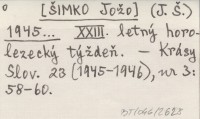 [ŠIMKO Jožo] (J. Š.)
1945... XXIII. letný horo-
lezecký týždeň. – Krásy
Slov. 23 (1945-1946), nr 3:
58-60.
BT/046/2623